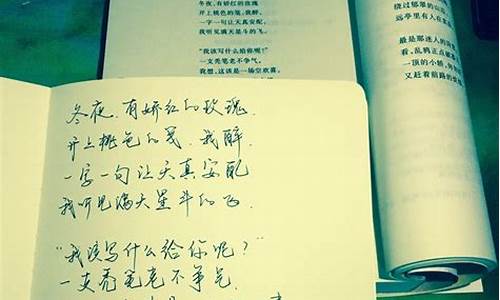 冬夜，有娇红的玫瑰
开上桃色的笺，我醉，
一字一句让天真安配，
我听见满天星斗的飞。
“我该写什么给你呢？”
一支秃笔老不争气，
我想，这该是一场空欢喜。
绕过郁翠的山
远亭里有人在
最是那迷人的
看，乱鸦正点
一顶的小轿，
又赶着前路的
冬夜，有娇红的玫瑰，
开上桃色的笺，我醉，
一字一句让天真安配
我听见满天星斗的飞，
“我该写什么给你呢？”
一支秃笔老不争气，